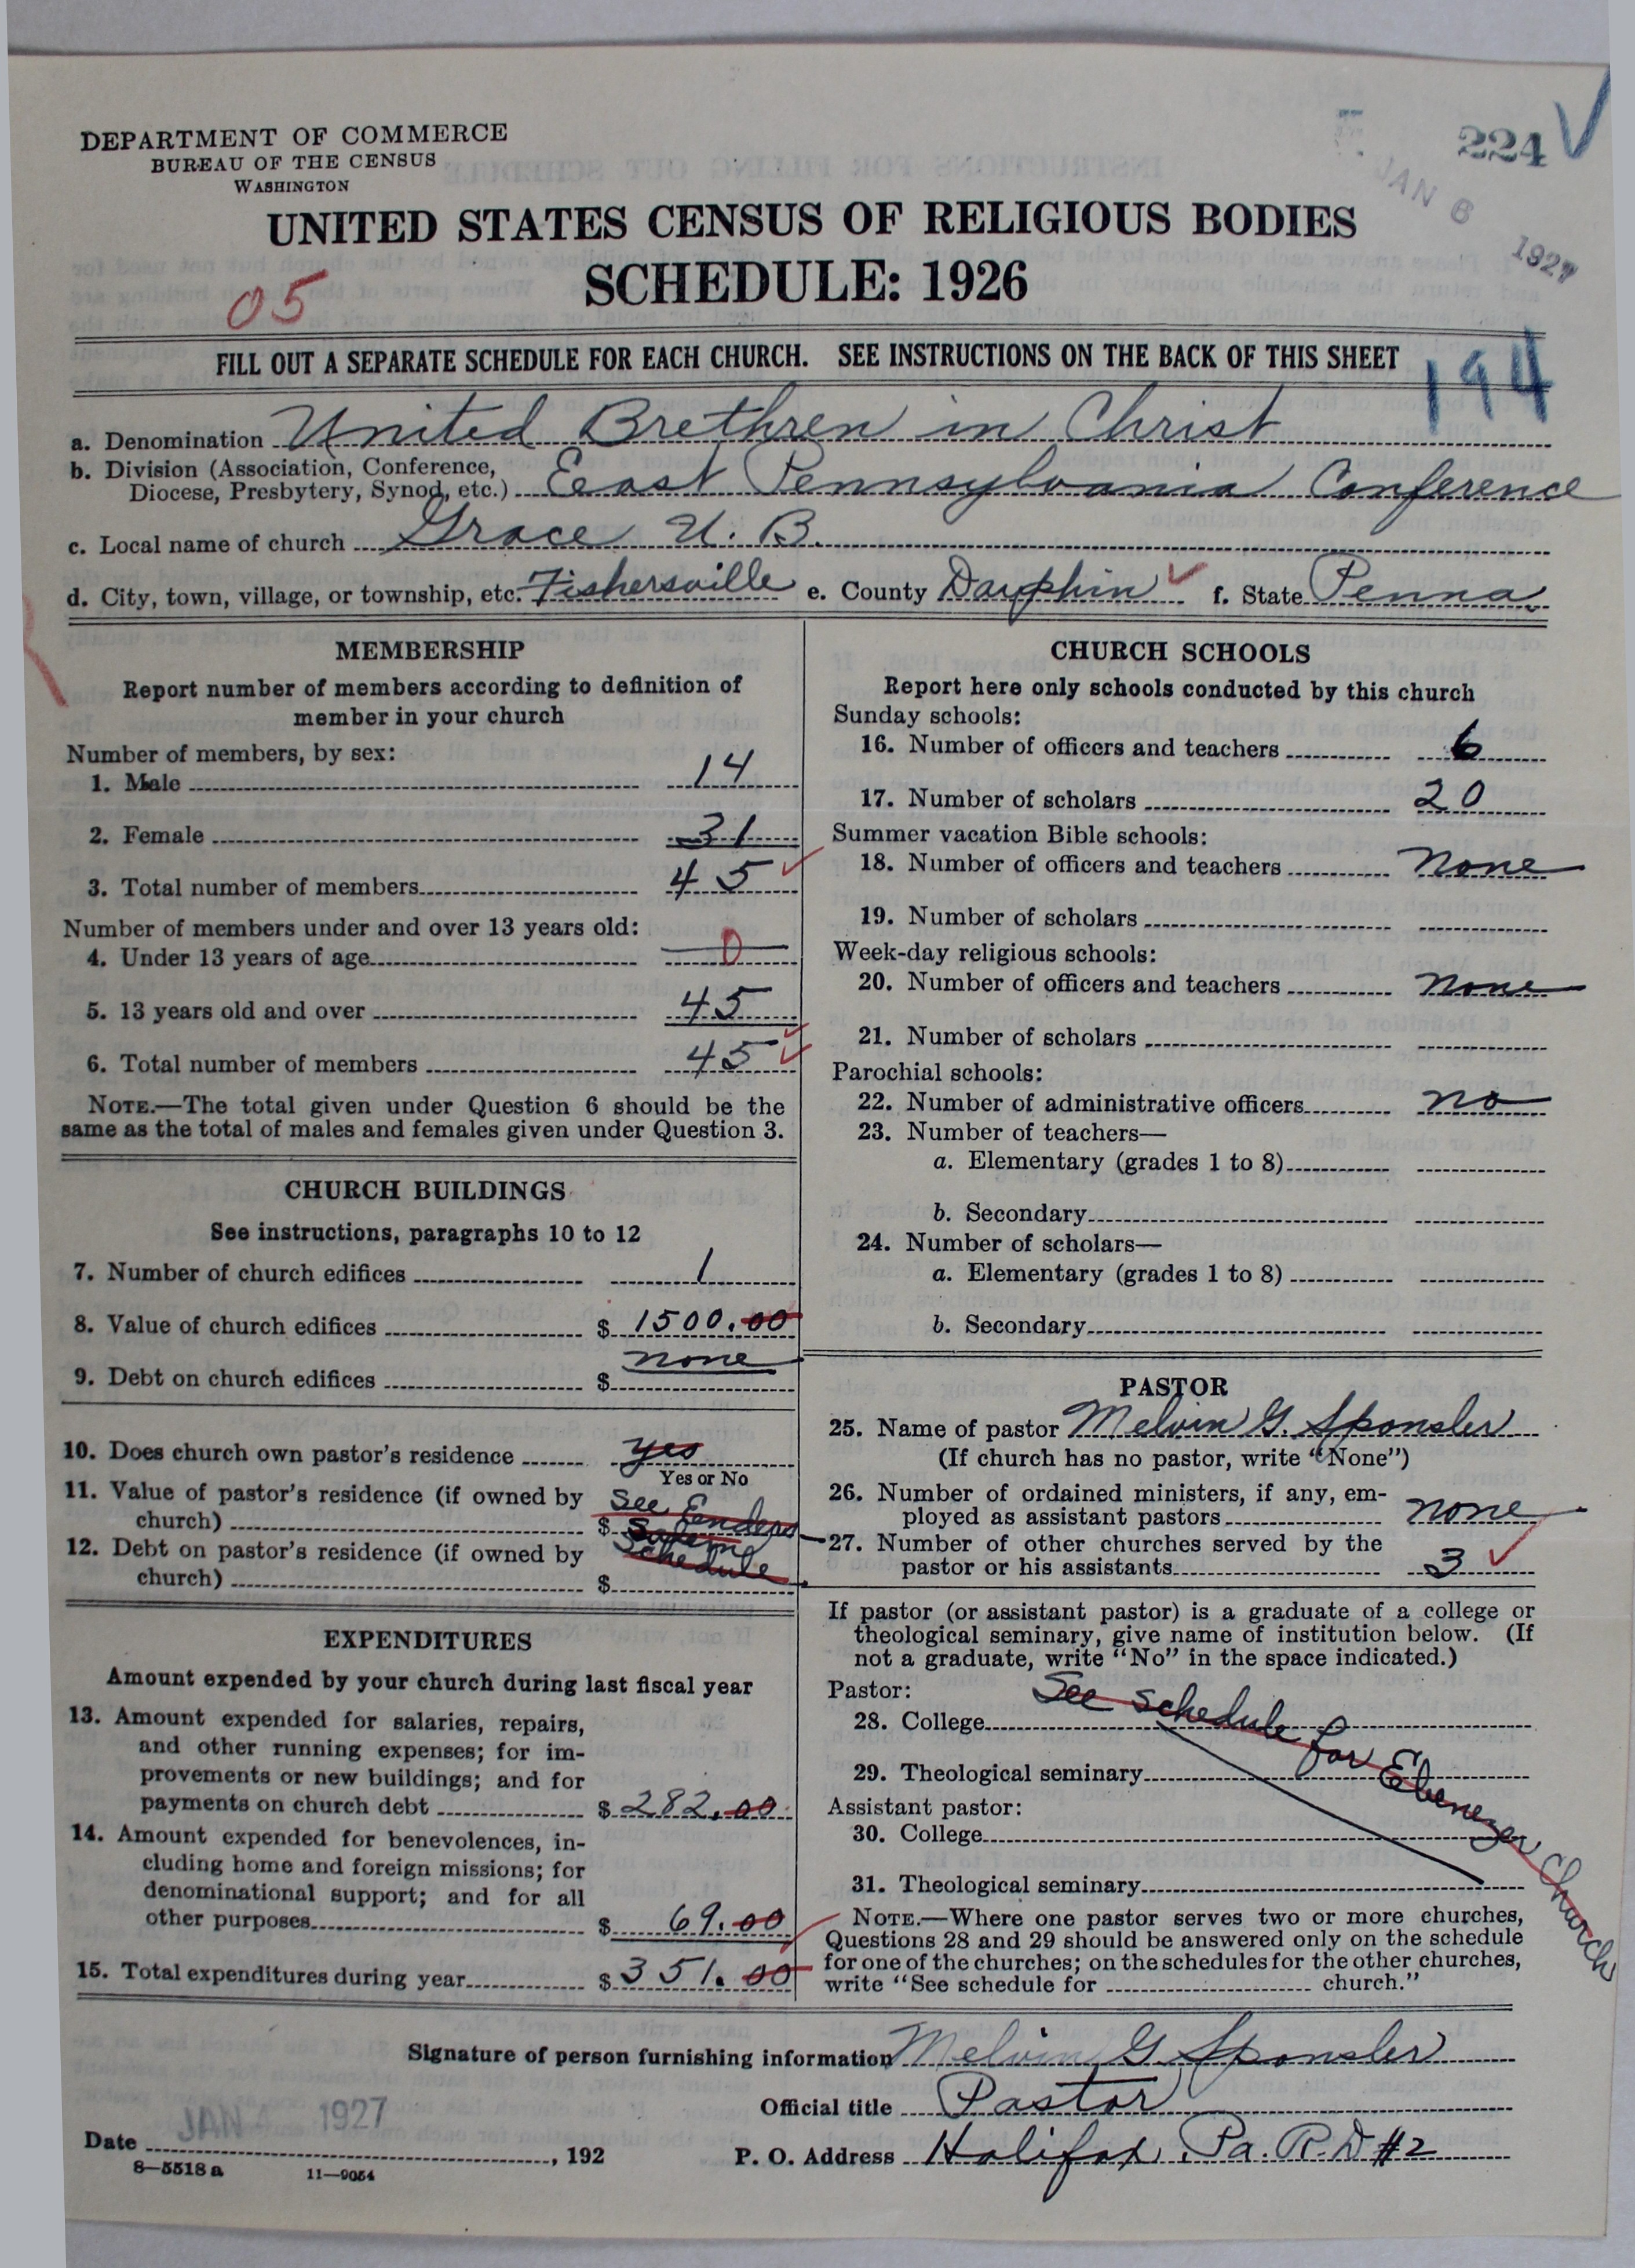 224 V
JAN 6 1927
DEPARTMENT OF COMMERCE
BUREAU OF THE CENSUS
WASHINGTON
UNITED STATES CENSUS OF RELIGIOUS BODIES
SCHEDULE: 1926
05
FILL OUT A SEPARATE SCHEDULE FOR EACH CHURCH. SEE INSTRUCTIONS ON THE BACK OF THIS SHEET
194
a. Denomination United Brethren in Christ
b. Division (Association, Conference,
Diocese, Presbytery, Synod, etc.) East Pennsylvania Conference
c. Local name of church Grace U. B.
d. City, town, village, or township, etc. Fishersville e. County Dauphin f. State Penna.
MEMBERSHIP
Report number of members according to definition of
member in your church
Number of members, by sex:
1. Male 14
2. Female 31
3. Total number of members 45
Number of members under and over 13 years old:
4. Under 13 years of age 0
5. 13 years old and over 45
6. Total number of members 45
NOTE.—The total given under Question 6 should be the
same as the total of males and females given under Question 3.
CHURCH BUILDINGS
See instructions, paragraphs 10 to 12
7. Number of church edifices 1
8. Value of church edifices $ 1500.00
9. Debt on church edifices $ none
10. Does church own pastor's residence yes
Yes or No
11. Value of pastor's residence (if owned by
church) $ See Enders
12. Debt on pastor's residence (if owned by
church) $ Schedule
EXPENDITURES
Amount expended by your church during last fiscal year
13. Amount expended for salaries, repairs,
and other running expenses; for im-
provements or new buildings; and for
payments on church debt $ 282.00
14. Amount expended for benevolences, in-
cluding home and foreign missions; for
denominational support; and for all
other purposes $ 69.00
15. Total expenditures during year $ 351.00
CHURCH SCHOOLS
Report here only schools conducted by this church
Sunday schools:
16. Number of officers and teachers 6
17. Number of scholars 20
Summer vacation Bible schools:
18. Number of officers and teachers none
19. Number of scholars
Week-day religious schools:
20. Number of officers and teachers none
21. Number of scholars
Parochial schools:
22. Number of administrative officers no
23. Number of teachers—
a. Elementary (grades 1 to 8)
b. Secondary
24. Number of scholars—
a. Elementary (grades 1 to 8)
b. Secondary
PASTOR
25. Name of pastor Melvin G. Sponsler
(If church has no pastor, write "None")
26. Number of ordained ministers, if any, em-
ployed as assistant pastors none
27. Number of other churches served by the
pastor or his assistants 3
If pastor (or assistant pastor) is a graduate of a college or
theological seminary, give name of institution below. (If
not a graduate, write "No" in the space indicated.)
Pastor: See schedule for Ebenezer Church
28. College
29. Theological seminary
Assistant pastor:
30. College
31. Theological seminary
NOTE.—Where one pastor serves two or more churches,
Questions 28 and 29 should be answered only on the schedule
for one of the churches; on the schedules for the other churches,
write "See schedule for church."
Signature of person furnishing information Melvin G. Sponsler
Official title Pastor
Date JAN 1927, 192
P. O. Address Halifax, Pa. R.D #2
8—5518 a 11—9054